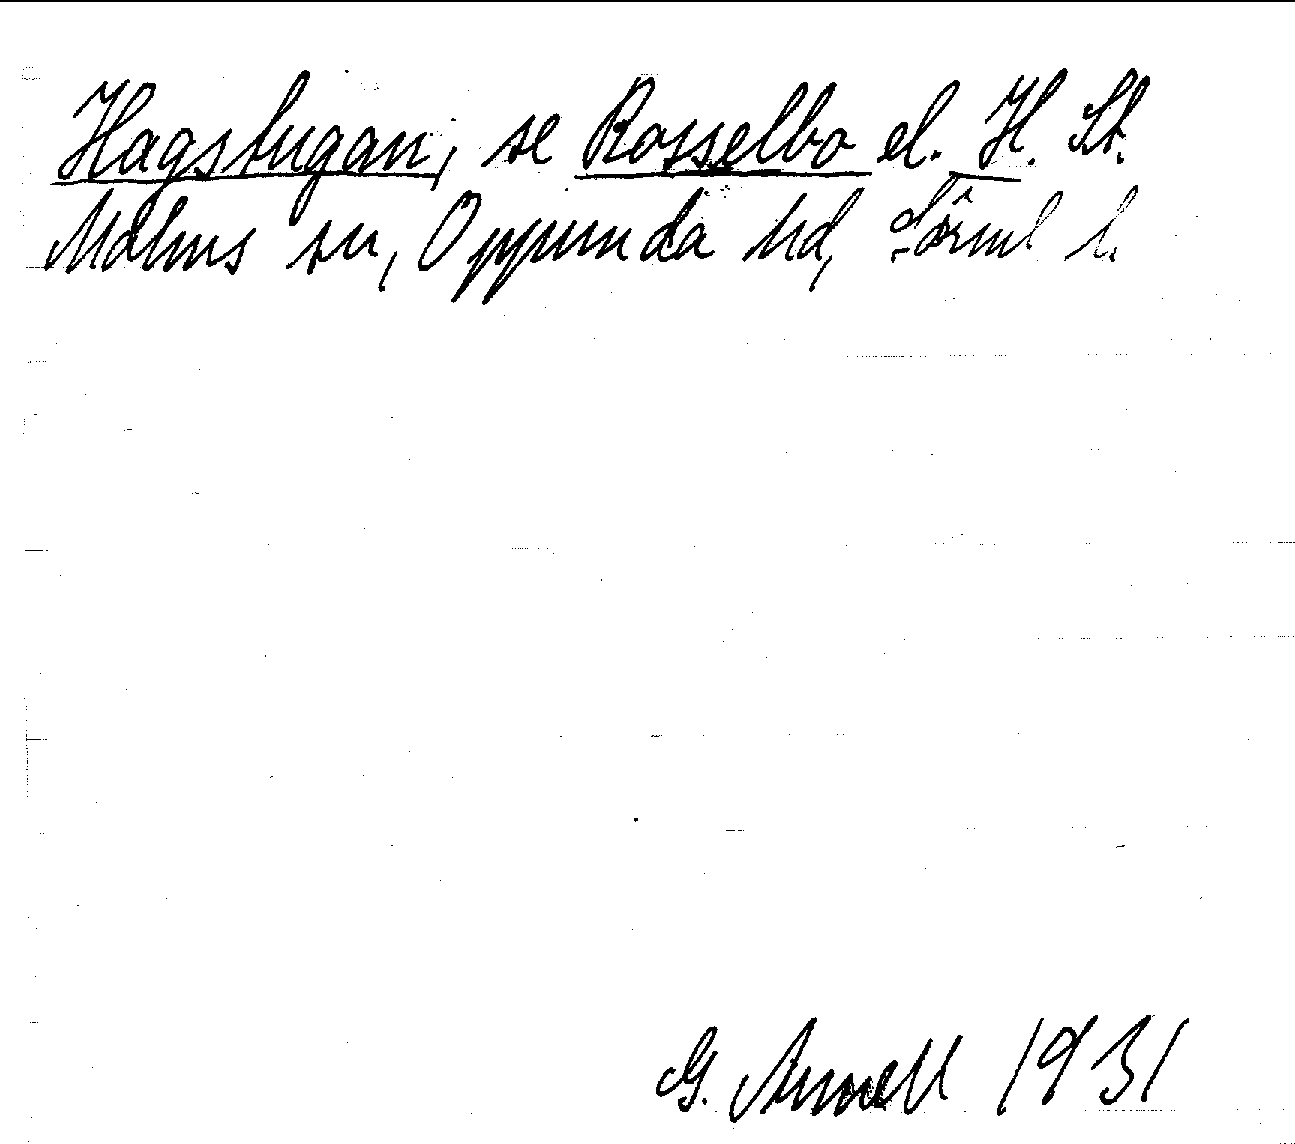 Hagstugan, se Rosselbo el. H. St.
Malms sn, Oppunda hd, Sörml l.
G. Arnell 1931